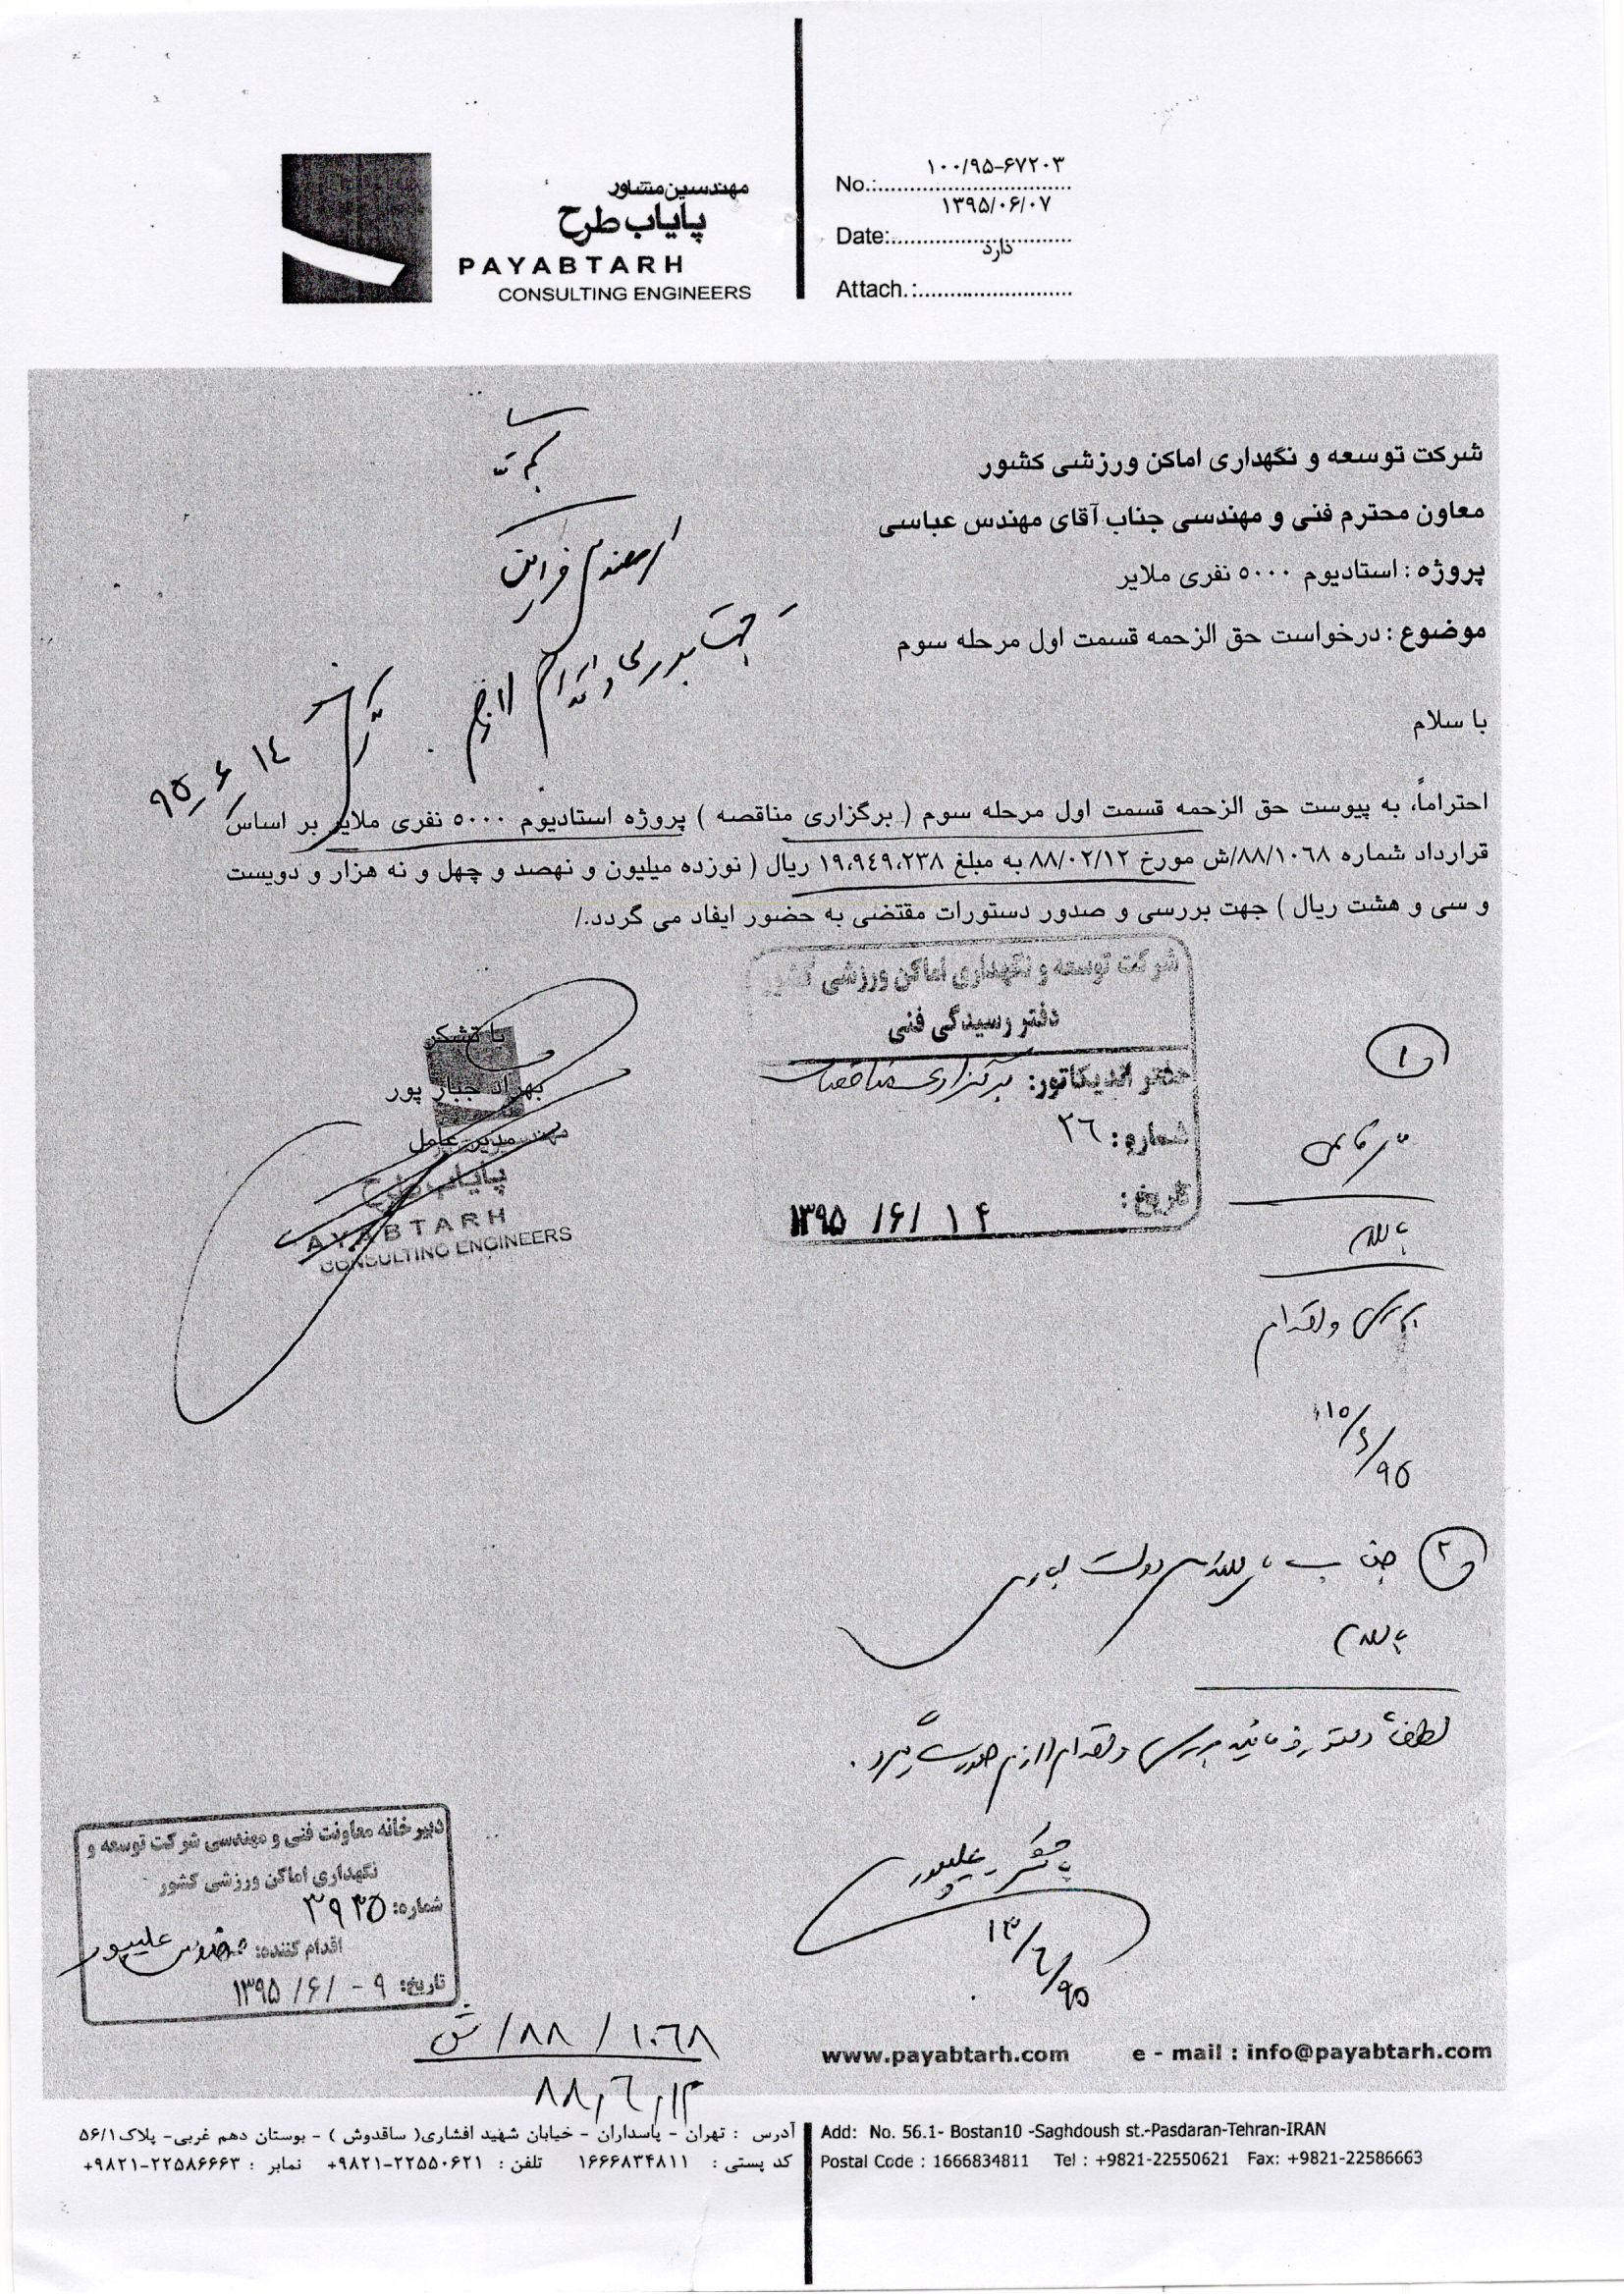 مهندسین مشاور
پایاب طرح
PAYABTARH
CONSULTING ENGINEERS
No.:.............................. ۱۰۰/۹۵-۶۷۲۰۳
Date:.............................. ۱۳۹۵/۰۶/۰۷
Attach.:.......................... دارد
شرکت توسعه و نگهداری اماکن ورزشی کشور
معاون محترم فنی و مهندسی جناب آقای مهندس عباسی
پروژه : استادیوم ۵۰۰۰ نفری ملایر
موضوع : درخواست حق الزحمه قسمت اول مرحله سوم
جهت بررسی و اقدام لازم
۹۵/۶/۱۴
با سلام
احتراماً، به پیوست حق الزحمه قسمت اول مرحله سوم ( برگزاری مناقصه ) پروژه استادیوم ۵۰۰۰ نفری ملایر بر اساس
قرارداد شماره ۸۸/۱۰۶۸/ش مورخ ۸۸/۰۲/۱۲ به مبلغ ۱۹،۹٤۹،۲۳۸ ریال ( نوزده میلیون و نهصد و چهل و نه هزار و دویست
و سی و هشت ریال ) جهت بررسی و صدور دستورات مقتضی به حضور ایفاد می گردد./
با تشکر
بهراد جبار پور
مدیر عامل
مهندسین
پایاب طرح
AYABTARH
CONSULTING ENGINEERS
شرکت توسعه و نگهداری اماکن ورزشی کشور
دفتر رسیدگی فنی
دفتر اندیکاتور: برگزاری مناقصات
شماره: ۲۶
تاریخ: ۱۳۹۵/۶/۱۴
۱
با سلام
بررسی و اقدام
۹۵/۶/۱۵
۲
جناب مهندس دولت
با سلام
لطفاً دستور فرمائید بررسی و اقدام لازم صورت پذیرد.
با تشکر علیپور
۹۵/۶/۱۳
دبیرخانه معاونت فنی و مهندسی شرکت توسعه و
نگهداری اماکن ورزشی کشور
شماره: ۳۹۳۵
اقدام کننده: مهندس علیپور
تاریخ: ۱۳۹۵/۶/-۹
۸۸/۱۰۶۸/ش
۸۸/۲/۱۲
www.payabtarh.com e - mail : info@payabtarh.com
آدرس : تهران - پاسداران - خیابان شهید افشاری( ساقدوش ) - بوستان دهم غربی- پلاک ۵۶/۱
کد پستی : ۱۶۶۶۸۳۴۸۱۱ تلفن : ۲۲۵۵۰۶۲۱-۹۸۲۱+ نمابر : ۲۲۵۸۶۶۶۳-۹۸۲۱+
Add: No. 56.1- Bostan10 -Saghdoush st.-Pasdaran-Tehran-IRAN
Postal Code : 1666834811 Tel : +9821-22550621 Fax: +9821-22586663